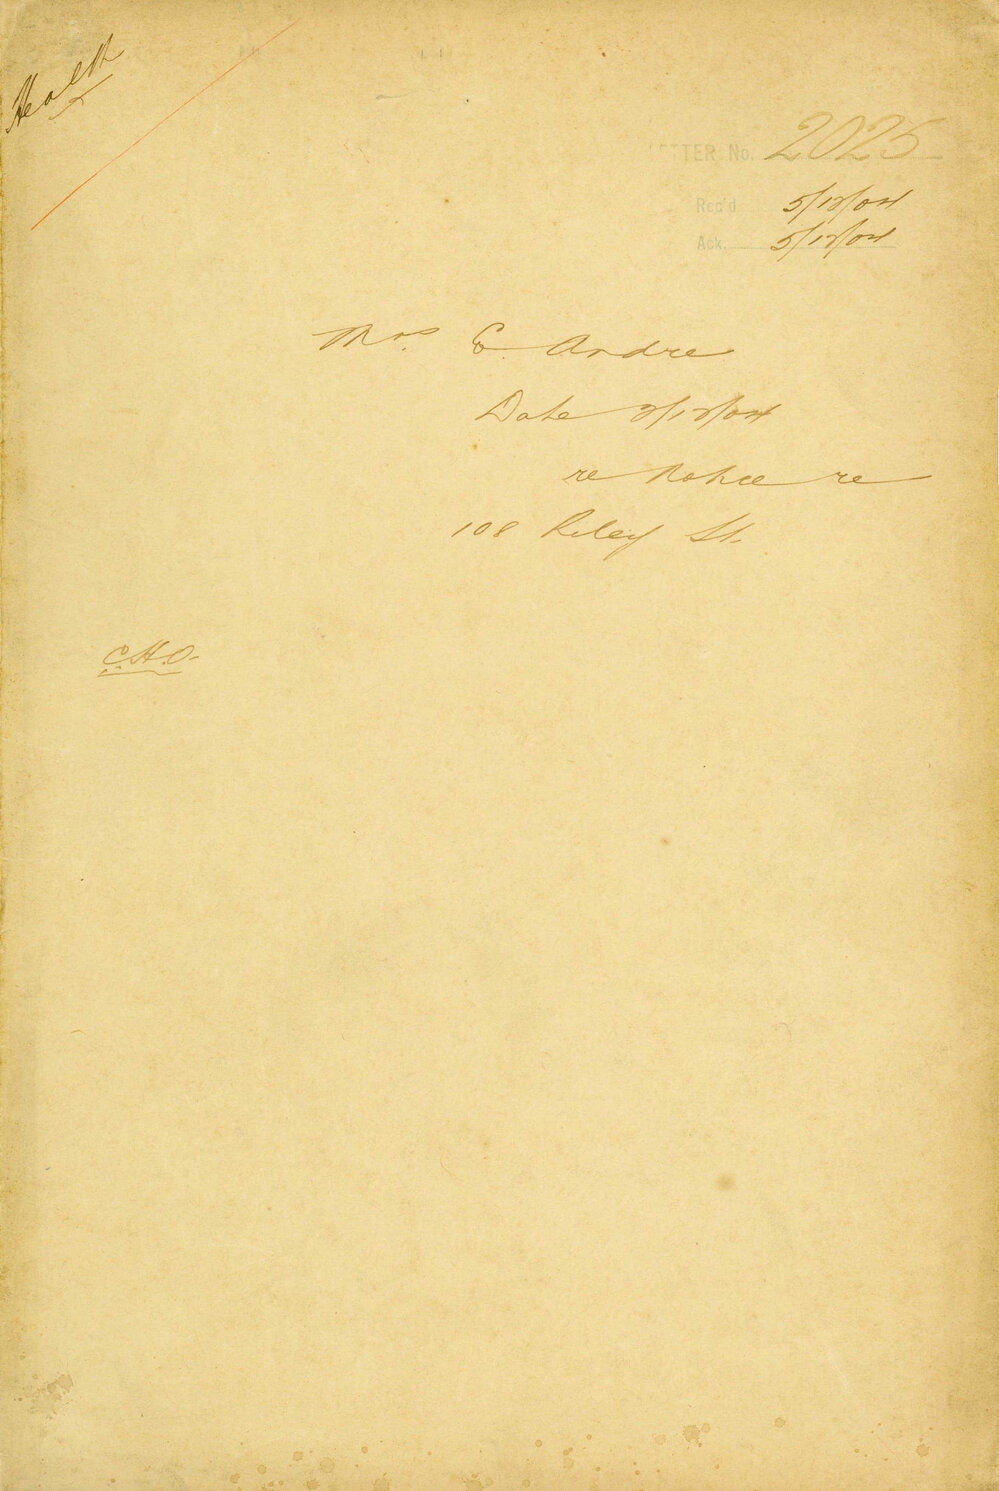 Health
LETTER No. 2025
Rec'd 5/12/04
Ack. 5/12/04
Mrs. E. Andre
Date 3/12/04
re Notice re
108 Riley St.
C.H.O.